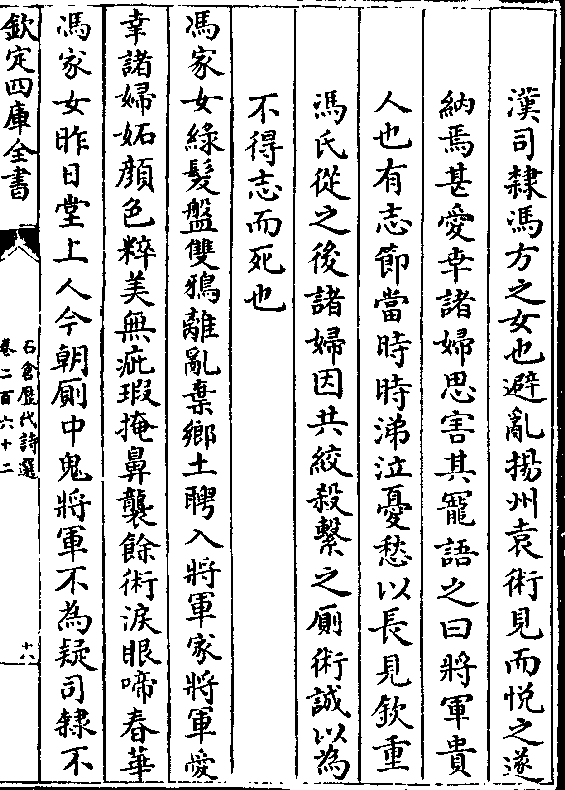 漢司隸馮方之女也避亂揚州袁術見而悦之遂
納焉甚愛幸諸婦思害其寵語之曰將軍貴
人也有志節當時時涕泣憂愁以長見欽重
馮氏從之後諸婦因共絞殺繫之厠術誠以為
不得志而死也
馮家女綠髮盤雙鴉離亂棄鄉土聘入將軍家將軍愛
幸諸婦妬顔色粹美無疵瑕掩鼻襲餘術淚眼啼春華
馮家女昨日堂上人今朝厠中鬼將軍不為疑司隸不
欽定四庫全書
石倉歷代詩選
卷二百六十二
十六